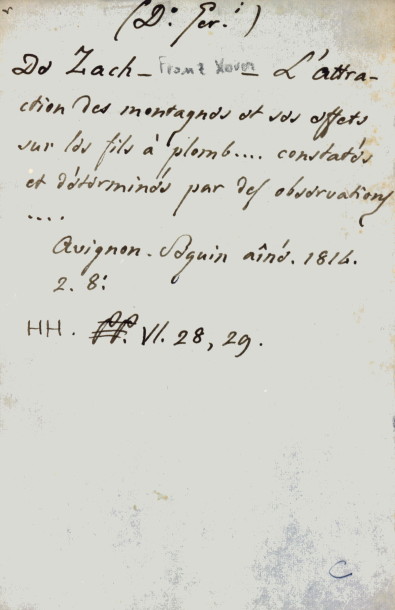 (D.º Ger.i)
De Zach - Franz Xaver - L'attra-
ction des montagnes et ses effets
sur les fils à plomb.... constatés
et déterminés par des observations
....
Avignon. Séguin aîné. 1814.
2. 8:
HH. VI. 28, 29.
C